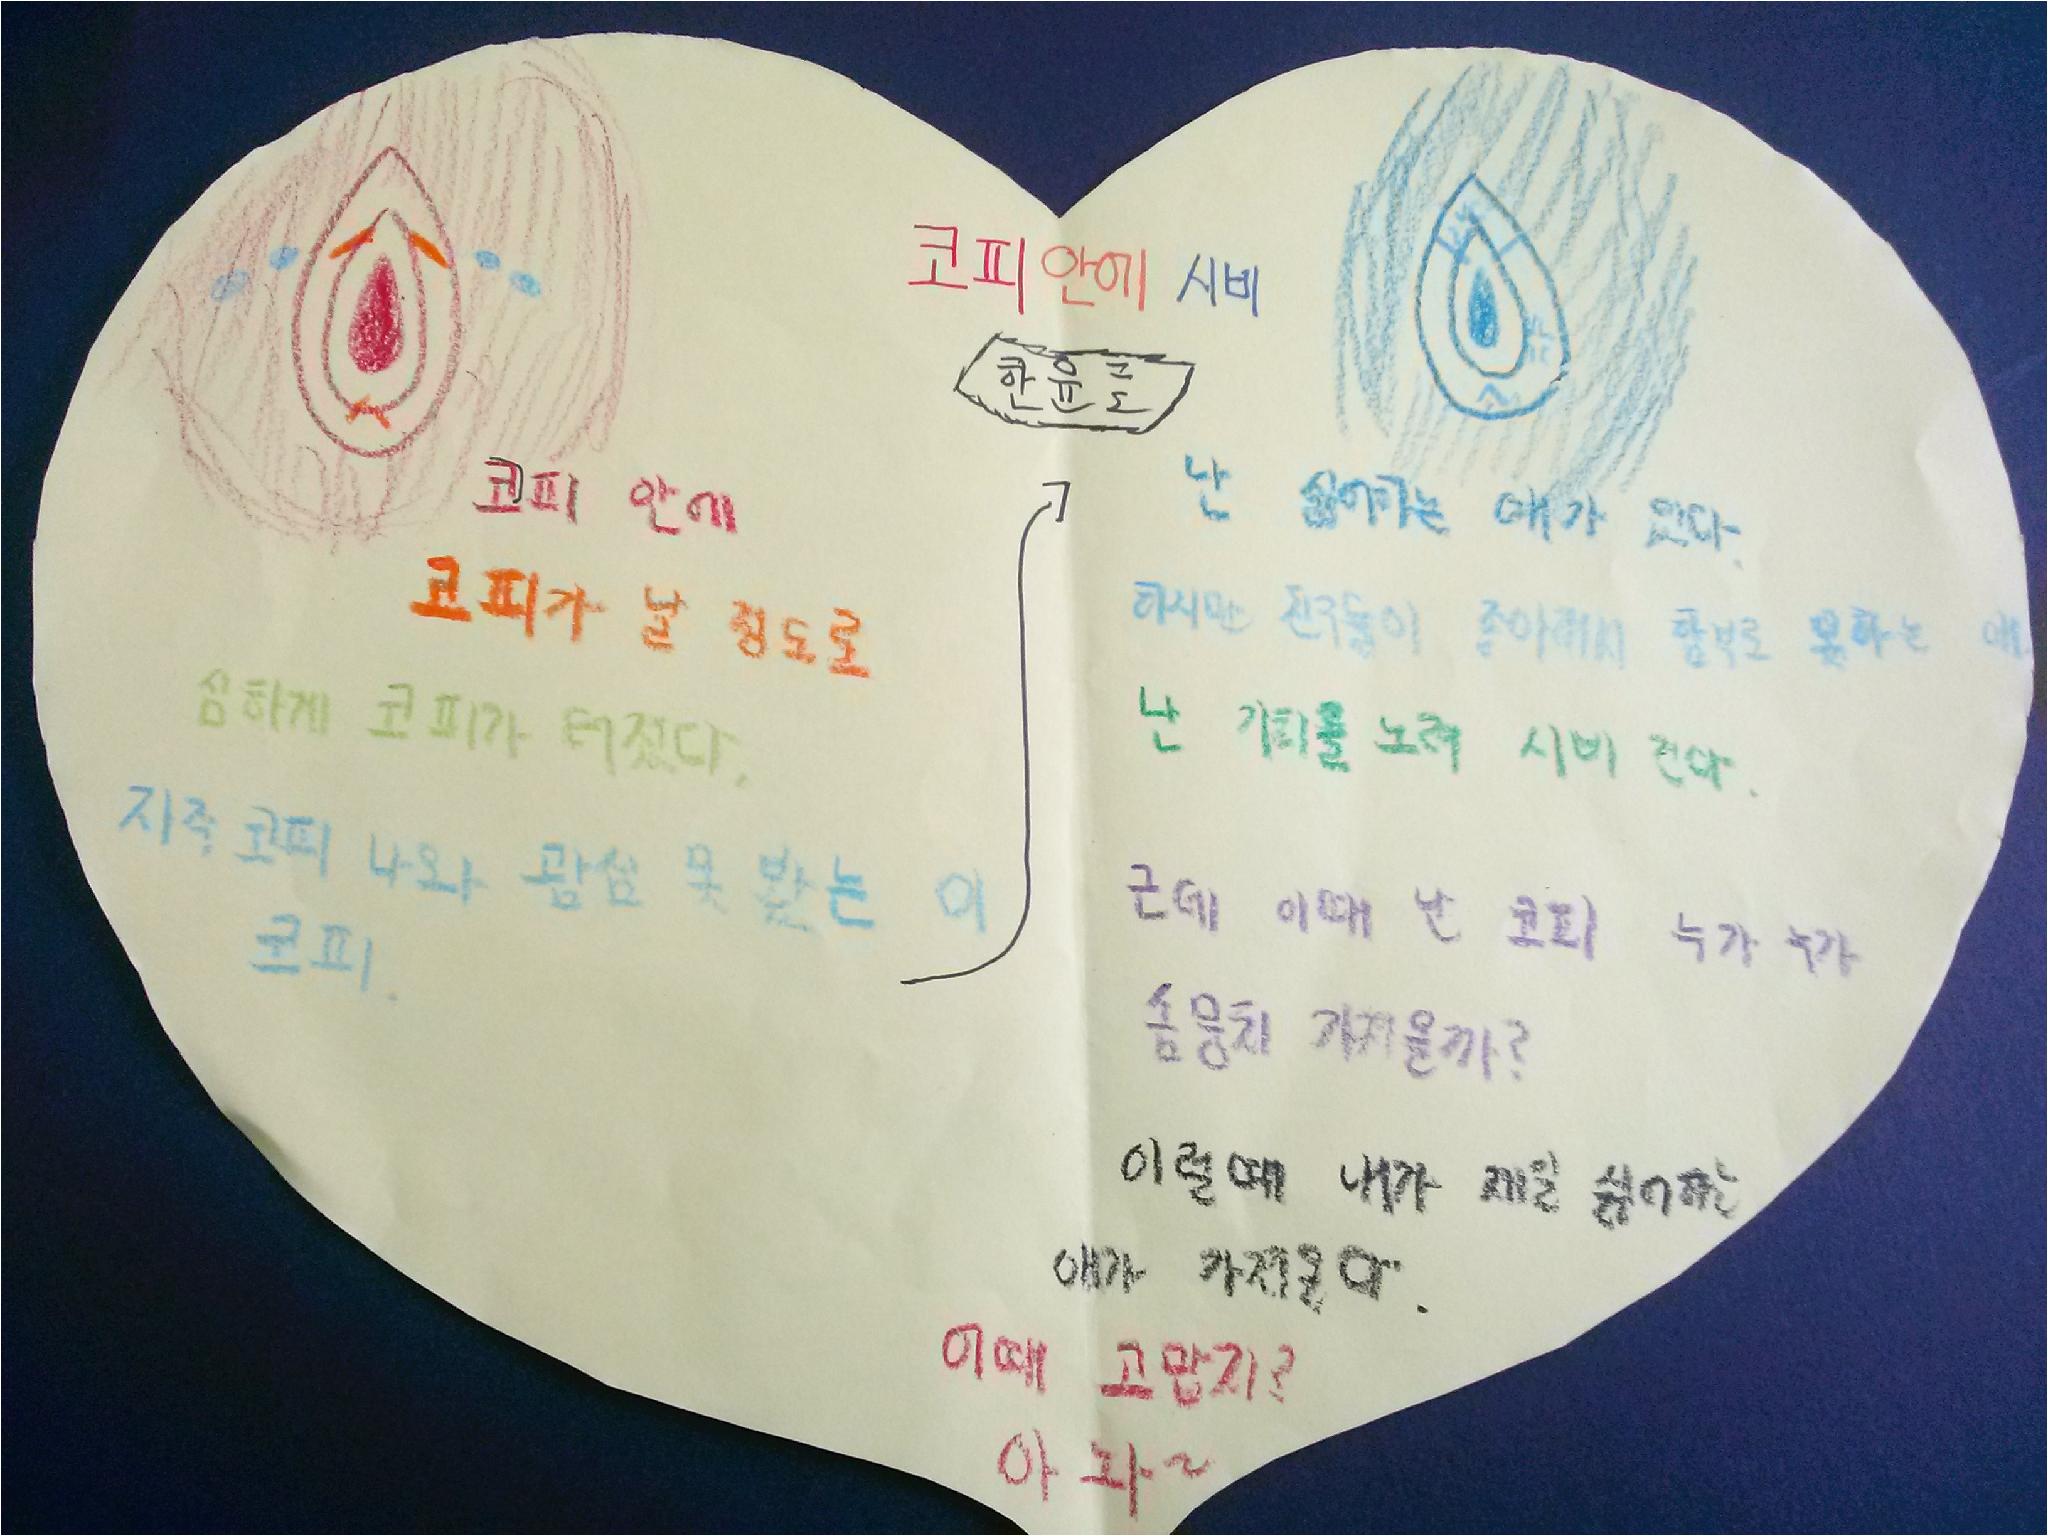 코피 안에 시비
한윤도
코피 안에
코피가 날 정도로
심하게 코피가 터졌다.
지쭉 코피 나와 괌섬 못 봤는 이
코피.
난 싫어하는 애가 있다.
하지만 친구들이 좋아해서 함부로 못하는 애.
난 기회를 노려 시비 건다.
근데 이때 난 코피 누가 누가
솜뭉치 가져올까?
이럴때 내가 제일 싫어하는
애가 가져온다.
이때 고맙지?
아 놔~